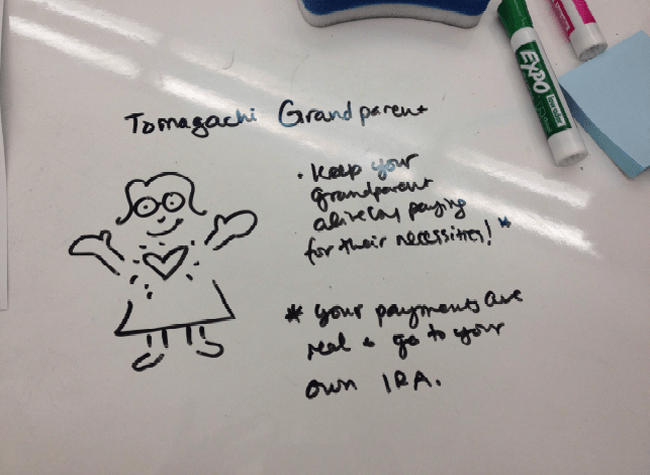 Tomagachi Grandparent
• Keep your
grandparent
alive by paying
for their necessities! *
* your payments are
real + go to your
own IRA.
EXPO